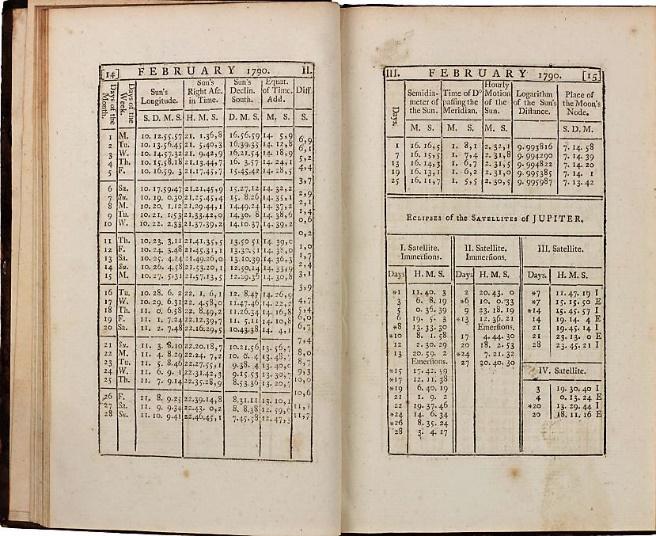 [14] FEBRUARY 1790. II.
Days of the Month. Days of the Week. Sun's Longitude. Sun's Right Asc. in Time. Sun's Declin. South. Equat. of Time. Add. Diff.
S. D. M. S. H. M. S. D. M. S. M. S. S.
1 M. 10. 12.55.57 21. 1.36,8 16.56.59 14. 5,9
2 Tu. 10. 13.56.45 21. 5.40,3 16.39.35 14. 12,8
3 W. 10. 14.57.32 21. 9.42,9 16.21.54 14. 18,9
4 Th. 10. 15.58.18 21.13.44,7 16. 3.57 14. 24,1
5 F. 10. 16.59. 3 21.17.45,7 15.45.42 14. 28,5
6 Sa. 10. 17.59.47 21.21.45,9 15.27.12 14. 32,2
7 Su. 10. 19. 0.30 21.25.45,4 15. 8.26 14. 35,1
8 M. 10. 20. 1.12 21.29.44,1 14.49.24 14. 37,2
9 Tu. 10. 21. 1.53 21.33.42,0 14.30. 8 14. 38,6
10 W. 10. 22. 2.33 21.37.39,2 14.10.37 14. 39,2
11 Th. 10. 23. 3.11 21.41.35,5 13.50.51 14. 39,0
12 F. 10. 24. 3.48 21.45.31,1 13.30.51 14. 38,0
13 Sa. 10. 25. 4.24 21.49.26,0 13.10.39 14. 36,3
14 Su. 10. 26. 4.58 21.53.20,1 12.50.14 14. 33,9
15 M. 10. 27. 5.31 21.57.13,5 12.29.36 14. 30,8
16 Tu. 10. 28. 6. 2 22. 1. 6,1 12. 8.47 14. 26,9
17 W. 10. 29. 6.31 22. 4.58,0 11.47.46 14. 22,2
18 Th. 11. 0. 6.58 22. 8.49,2 11.26.34 14. 16,8
19 F. 11. 1. 7.24 22.12.39,7 11. 5.11 14. 10,8
20 Sa. 11. 2. 7.48 22.16.29,5 10.43.38 14. 4,1
21 Su. 11. 3. 8.10 22.20.18,7 10.21.56 13. 56,7
22 M. 11. 4. 8.29 22.24. 7,2 10. 0. 4 13. 48,7
23 Tu. 11. 5. 8.46 22.27.55,1 9.38. 4 13. 40,0
24 W. 11. 6. 9. 1 22.31.42,3 9.15.53 13. 30,7
25 Th. 11. 7. 9.14 22.35.28,9 8.53.36 13. 20,7
26 F. 11. 8. 9.25 22.39.14,8 8.31.11 13. 10,1
27 Sa. 11. 9. 9.34 22.43. 0,2 8. 8.38 12. 59,0
28 Su. 11. 10. 9.41 22.46.45,1 7.45.58 12. 47,3
III. FEBRUARY 1790. [15]
Days. Semidiameter of the Sun. Time of Do passing the Meridian. Hourly Motion of the Sun. Logarithm of the Sun's Distance. Place of the Moon's Node.
M. S. M. S. M. S. S. D. M.
1 16. 16,5 1. 8,1 2. 32,1 9.993816 7. 14. 58
7 16. 15,5 1. 7,4 2. 31,8 9.994290 7. 14. 39
13 16. 14,3 1. 6,7 2. 31,5 9.994822 7. 14. 20
19 16. 13,1 1. 6,2 2. 31,0 9.995385 7. 14. 1
25 16. 11,7 1. 5,5 2. 30,5 9.995987 7. 13. 42
ECLIPSES of the SATELLITES of JUPITER.
I. Satellite. Immersions. II. Satellite. Immersions. III. Satellite.
Days H. M. S. Days H. M. S. Days. H. M. S.
*1 11. 40. 3 2 20. 43. 0 *7 11. 47. 19 I
3 6. 8. 19 *6 10. 0. 33 *7 15. 15. 50 E
5 0. 36. 39 9 23. 18. 19 *14 15. 45. 57 I
6 19. 5. 3 *13 12. 36. 21 14 19. 14. 4 E
*8 13. 33. 30 Emersions. 21 19. 45. 14 I
*10 8. 1. 58 17 4. 44. 30 21 23. 13. 0 E
12 2. 30. 29 20 18. 2. 53 28 23. 45. 21 I
13 20. 59. 2 *24 7. 21. 32
Emersions. 27 20. 40. 30
*15 17. 42. 59 IV. Satellite.
*17 12. 11. 38
*19 6. 40. 19 3 19. 30. 40 I
21 1. 9. 2 4 0. 13. 24 E
22 19. 37. 46 *20 13. 29. 44 I
*24 14. 6. 34 20 18. 11. 16 E
*26 8. 35. 24
*28 3. 4. 27